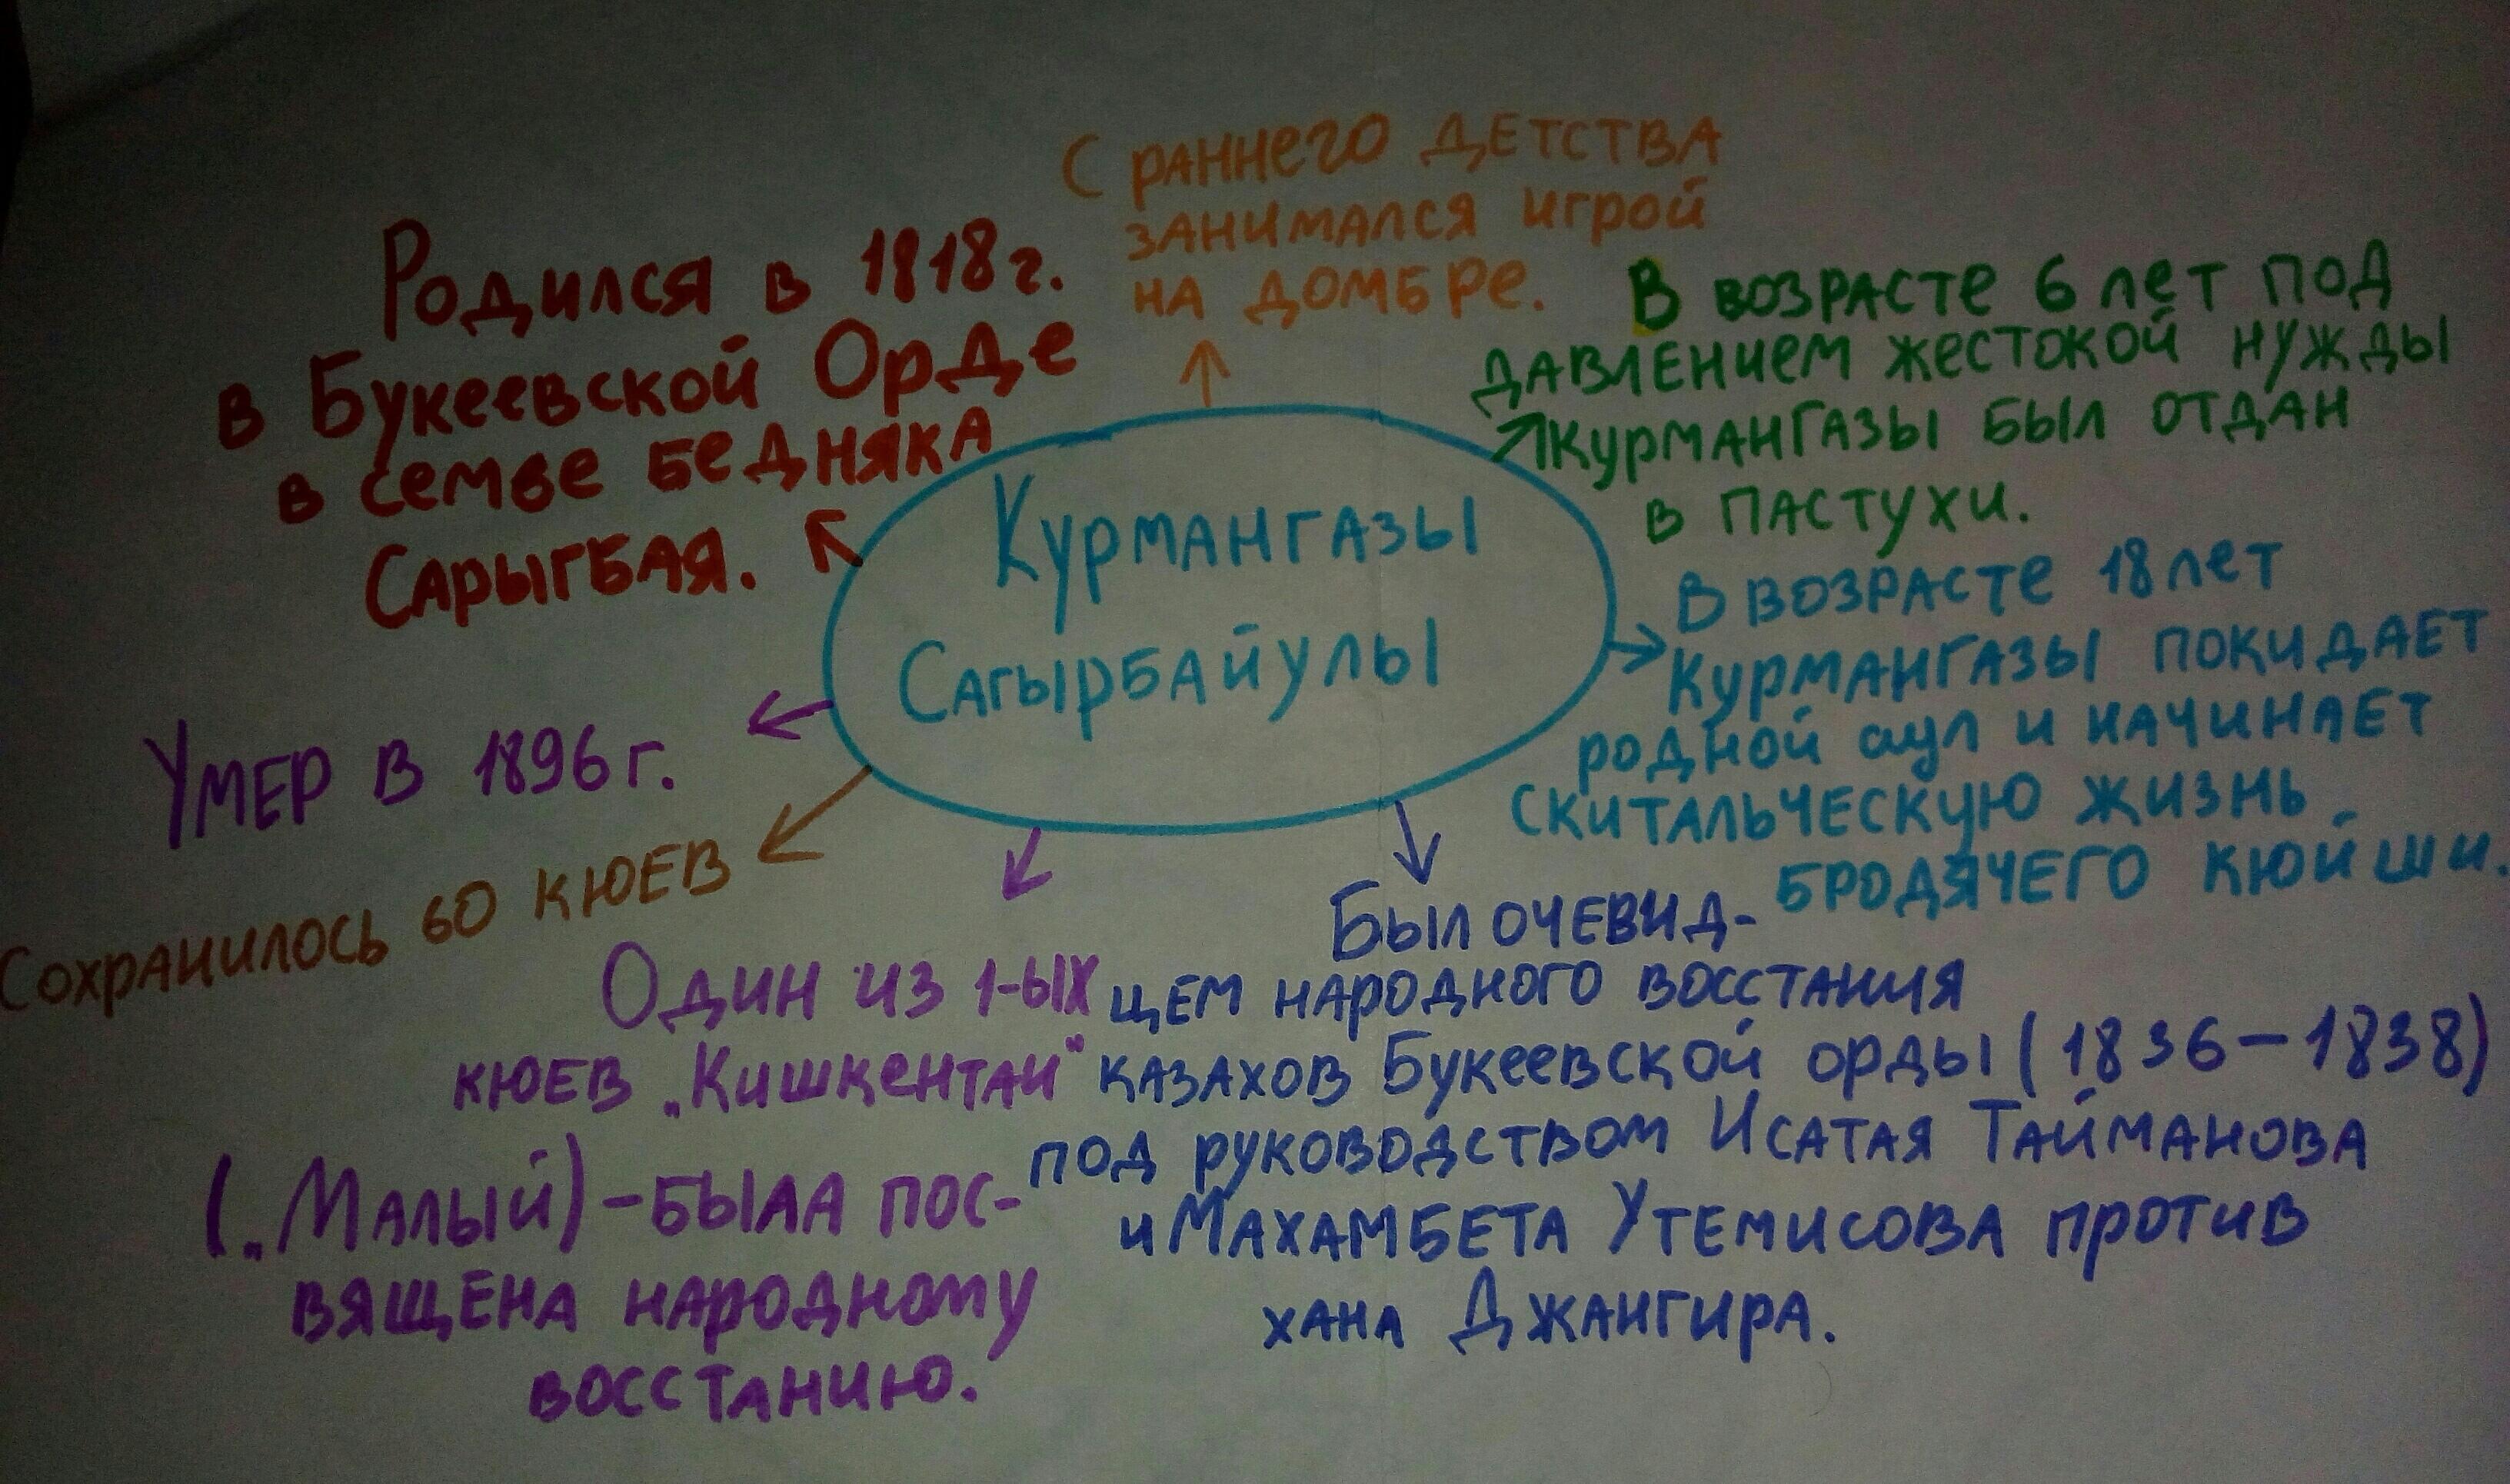 С раннего детства
занимался игрой
на домбре.
Родился в 1818г.
в Букеевской Орде
в семье бедняка
Сарыгбая.
В возрасте 6 лет под
давлением жестокой нужды
Курмангазы был отдан
в пастухи.
Курмангазы
Сагырбайулы
В возрасте 18 лет
Курмангазы покидает
родной аул и начинает
скитальческую жизнь
бродячего кюйши.
Умер в 1896г.
Сохранилось 60 кюев
Один из 1-ых
кюев „Кишкентаи"
(„Малый) – быаа пос-
вящена народному
восстанию.
Был очевид-
цем народного восстания
казахов Букеевской орды (1836–1838)
под руководством Исатая Тайманова
и Махамбета Утемисова против
хана Джангира.